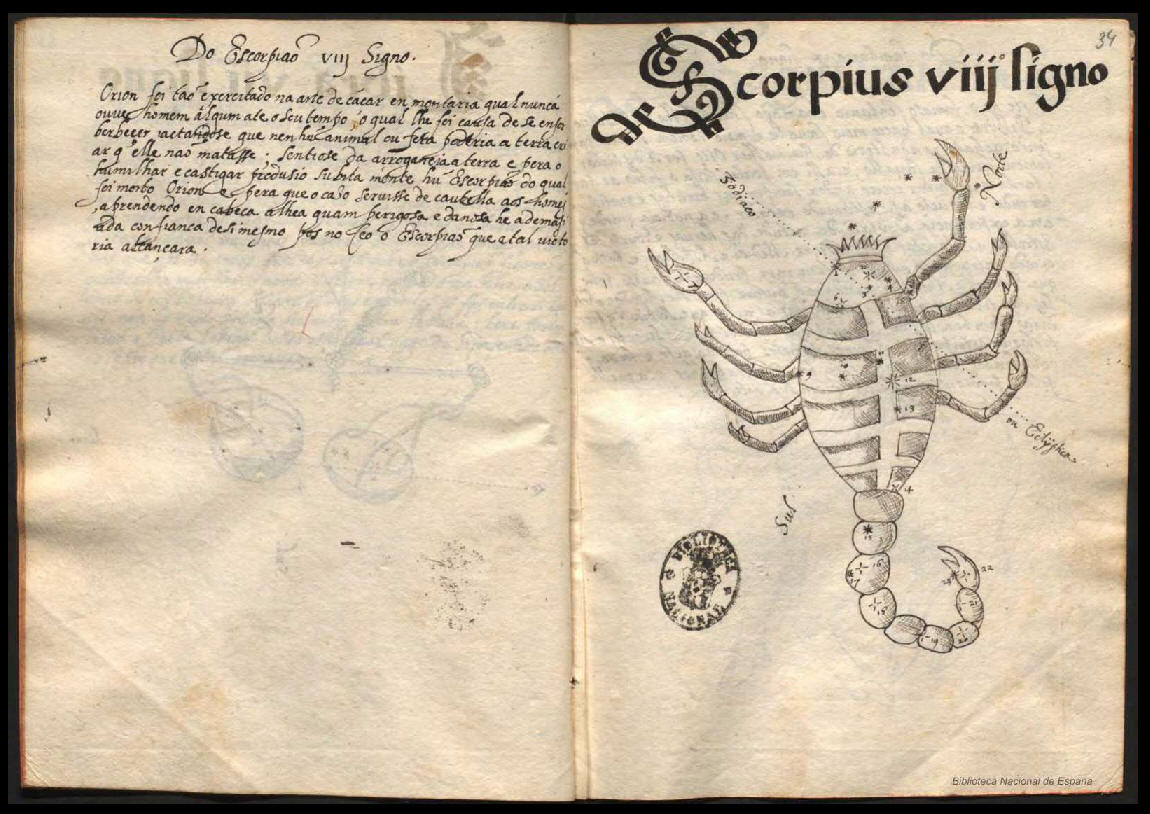 Do Escorpiaõ viij Signo.
Orion foi taõ exercitado na arte de caçar en montaria qual nunca
ouve homem algum ate o seu tempo, o qual lhe foi causa de se enso
berbeçer iactandose que nen hũ animal ou fera poderia a terra cri
ar q̃ elle naõ matasse. Sentiose da arrogançia a terra e pera o
humilhar e castigar produsio subita mente hũ Escorpiaõ do qual
foi morto Orion e pera que o caso seruisse de cautella aos homẽs
, aprendendo en cabeça alhea quam perigosa e danosa he a demasi
ada confiança de si mesmo pos no Ceo o Escorpiaõ que a tal victo
ria alcançara.
34
Scorpius viij signo
Zodiaco
Norte
ou Eclyptica
Sul
12
13
14
22
BIBLIOTECA NACIONAL
Biblioteca Nacional de España